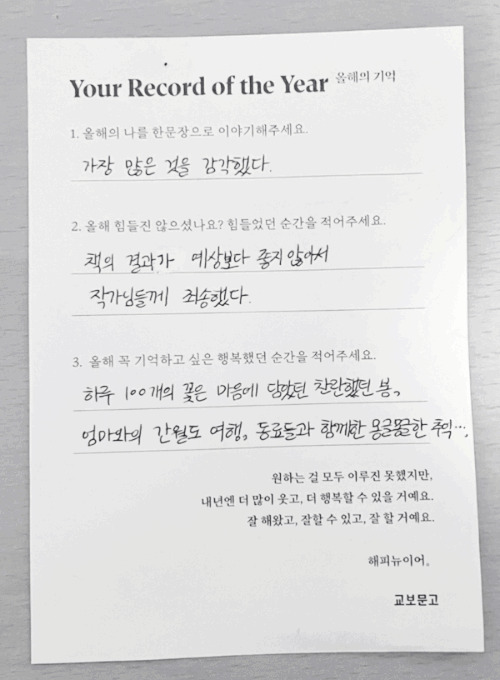 Your Record of the Year 올해의 기억
1. 올해의 나를 한문장으로 이야기해주세요.
가장 많은 것을 감각했다.
2. 올해 힘들진 않으셨나요? 힘들었던 순간을 적어주세요.
책의 결과가 예상보다 좋지 않아서
작가님들께 죄송했다.
3. 올해 꼭 기억하고 싶은 행복했던 순간을 적어주세요.
하루 100개의 꽃은 마음에 담았던 찬란했던 봄,
엄마와의 간월도 여행, 동료들과 함께한 몽글몽글한 추억….
원하는 걸 모두 이루진 못했지만,
내년엔 더 많이 웃고, 더 행복할 수 있을 거예요.
잘 해왔고, 잘할 수 있고, 잘 할 거예요.
해피뉴이어.
교보문고